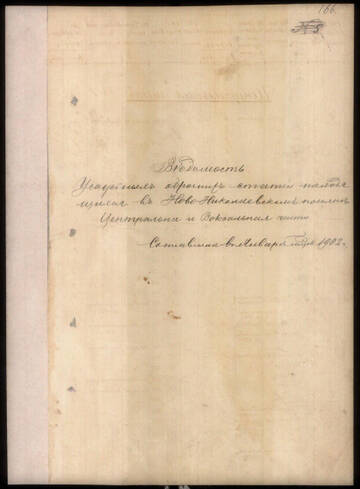 166
№ 5
Вѣдомость
Усадебнымъ оброчнымъ статьямъ находя
щимся въ Ново-Николаевскомъ поселкѣ
Центральная и Вокзальная части
Составлена въ Январѣ 1902 г.